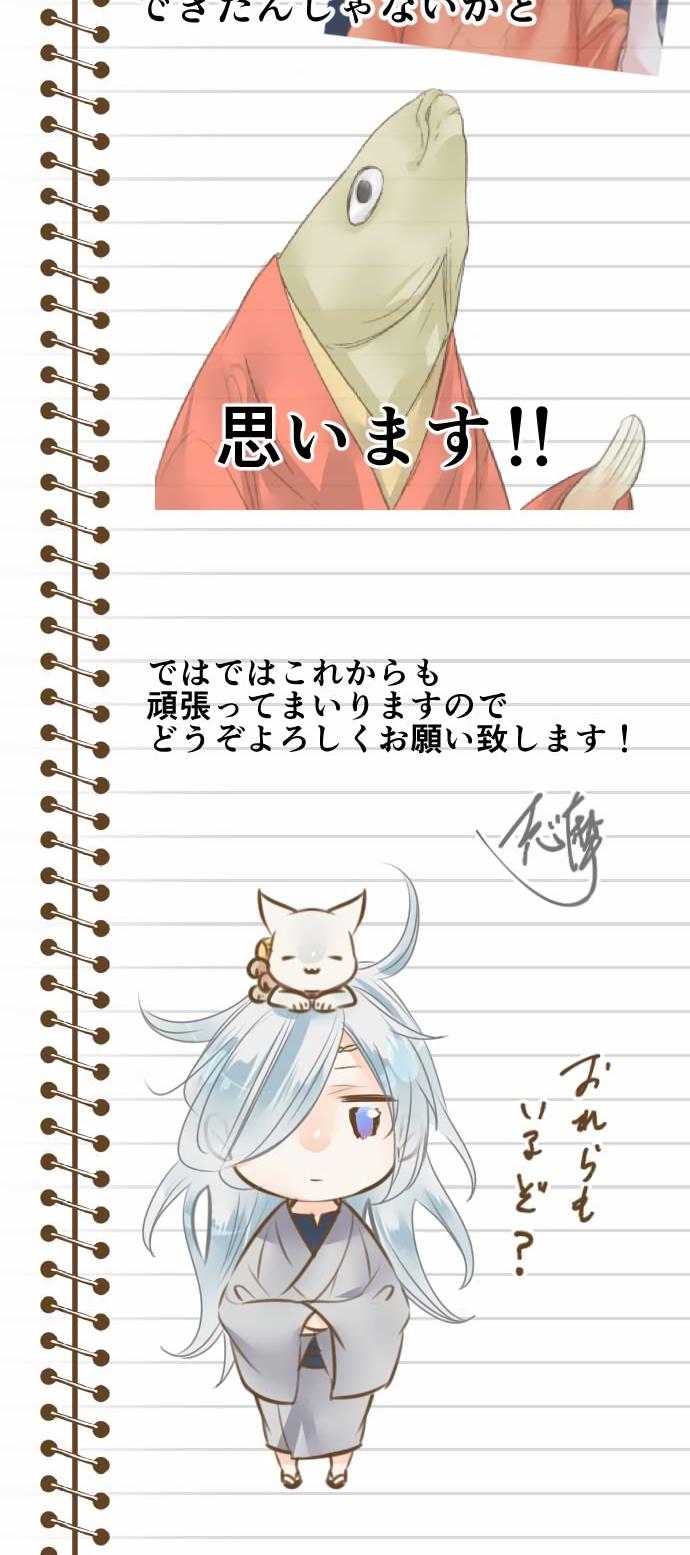 できたんじゃないかと
思います!!
ではではこれからも
頑張ってまいりますので
どうぞよろしくお願い致します！
おれらも
いるぞ？